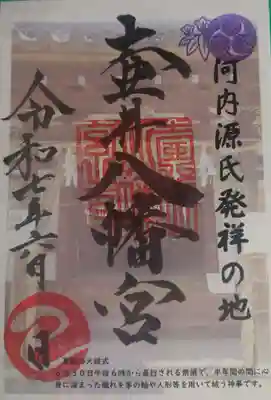 河内源氏発祥の地
壷井八幡宮
令和七年六月 日
夏越の大祓式
6月30日午後6時から斎行される祭儀で、半年間の間に心
身に溜まった穢れを茅の輪や人形等を用いて祓う神事です。